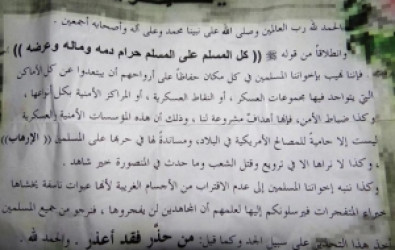 الحمد لله رب العالمين وصلى الله على نبينا محمد وعلى آله وأصحابه أجمعين .
وانطلاقاً من قوله ﷺ (( كل المسلم على المسلم حرام دمه وماله وعرضه ))
، فإننا نهيب بإخواننا المسلمين في كل مكان حفاظاً على أرواحهم أن يبتعدوا عن كل الأماكن
التي يتواجد فيها مجموعات العسكر ، أو النقاط العسكرية ، أو المراكز الأمنية بكل أنواعها ،
وكذا ضباط الأمن، فإنها أهدافٌ مشروعة لنا ، وذلك أن هذه المؤسسات الأمنية والعسكرية
ليست إلا حاميةً للمصالح الأمريكية في البلاد، ومساندةً لها في حربها على المسلمين (( الإرهاب ))
، وكذا لا نراها إلا في ترويع وقتل الشعب وما حدث في المنصورة خير شاهد .
وكذا ننبه إخواننا المسلمين إلى عدم الاقتراب من الأجسام الغريبة لأنها عبوات ناسفة يخشاها
خبراء المتفجرات فيرسلونكم إليها لعلمهم أن المجاهدين لن يفجروها ، فنرجو من جميع المسلمين
أخذ هذا التحذير على سبيل الجد وكما قيل: من حذّر فقد أعذر . والحمد لله .